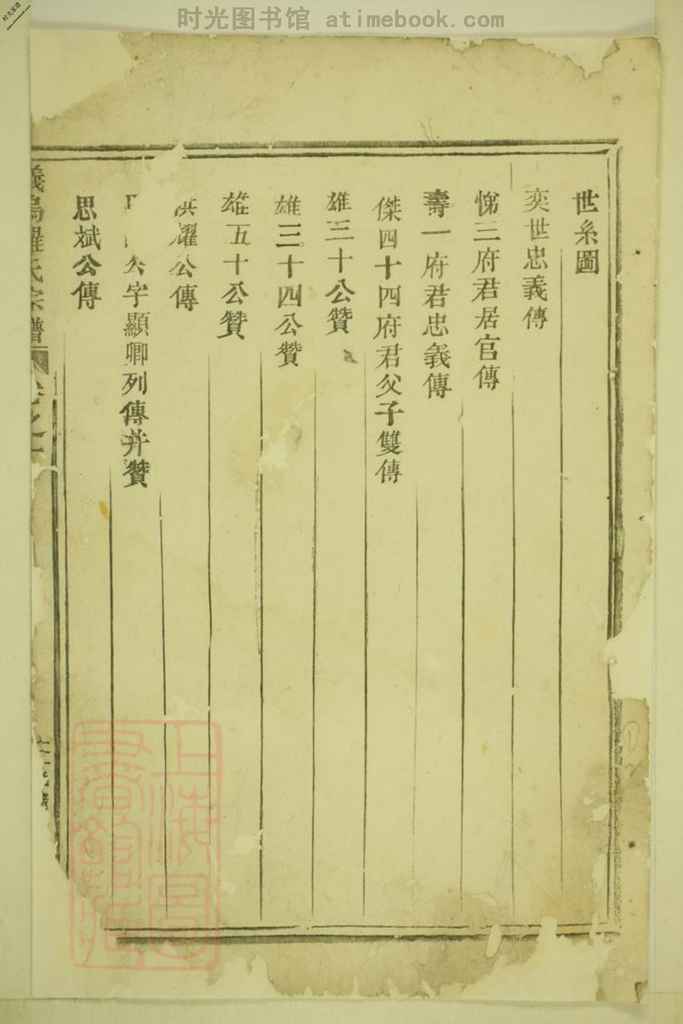 时光图书馆 atimebook.com
世系圖
奕世忠義傳
悌三府君居官傳
壽一府君忠義傳
傑四十四府君父子雙傳
雄三十公贊
雄三十四公贊
雄五十公贊
耀公傳
公字顯卿列傳并贊
思斌公傳
義烏 氏宗譜 卷之一
上海圖書館藏